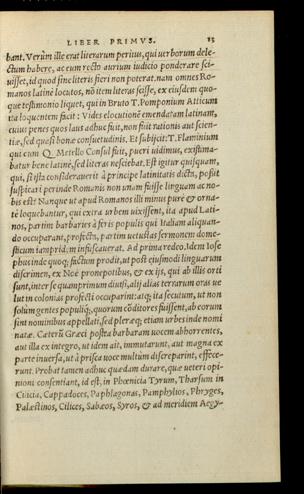 LIBER PRIMVS. 13
bant. Verùm ille erat literarum peritus, qui uerborum dele-
ctum habere, ac cum recto aurium iudicio ponderare sci-
uisset, id quod sine literis fieri non poterat. nam omnes Ro-
manos latinè locutos, nō item literas scisse, ex eiusdem quo-
que testimonio liquet, qui in Bruto T. Pomponium Atticum
ita loquentem facit: Vides elocutionē emendatam latinam,
cuius penes quos laus adhuc fuit, non fuit rationis aut scien-
tiæ, sed quasi bonæ consuetudinis. Et subijcit: T. Flaminium
qui cum Q. Metello Consul fuit, pueri uidimus, existima-
batur bene latinè, sed literas nesciebat. Est igitur quisquam,
qui, si ista considerauerit à principe latinitatis dicta, possit
suspicari perinde Romanis non unam fuisse linguam ac no-
bis est? Nanque ut apud Romanos illi minus purè & orna-
tè loquebantur, qui extra urbem uixissent, ita apud Lati-
nos, partim barbaries à feris populis qui Italiam aliquan-
do occuparant, profecta, partim uetustas sermonem dome-
sticum iampridē infuscauerat. Ad prima redeo. Idem Iose
phus inde quoq; factum prodit, ut post eiusmodi linguarum
discrimen, ex Noë pronepotibus, & ex ijs, qui ab illis orti
sunt, inter se quamprimum diuisi, alij alias terrarum oras ue
lut in colonias profecti occuparint: atq; ita secutum, ut non
solùm gentes populiq́;, quorum cōditores fuissent, ab eorum
sint nominibus appellati, sed pleræq; etiam urbes inde nomi
natæ. Cæterùm Græci postea barbaram uocem abhorrentes,
aut illa ex integro, ut idem ait, immutarunt, aut magna ex
parte inuersa, ut à prisca uoce multùm discreparint, effece-
runt. Probat tamen adhuc quædam durare, quæ ueteri opi-
nioni consentiant, id est, in Phœnicia Tyrum, Tharsum in
Cilicia, Cappadoces, Paphlagonas, Pamphylios, Phryges,
Palæstinos, Cilices, Sabæos, Syros, & ad meridiem Aegy-